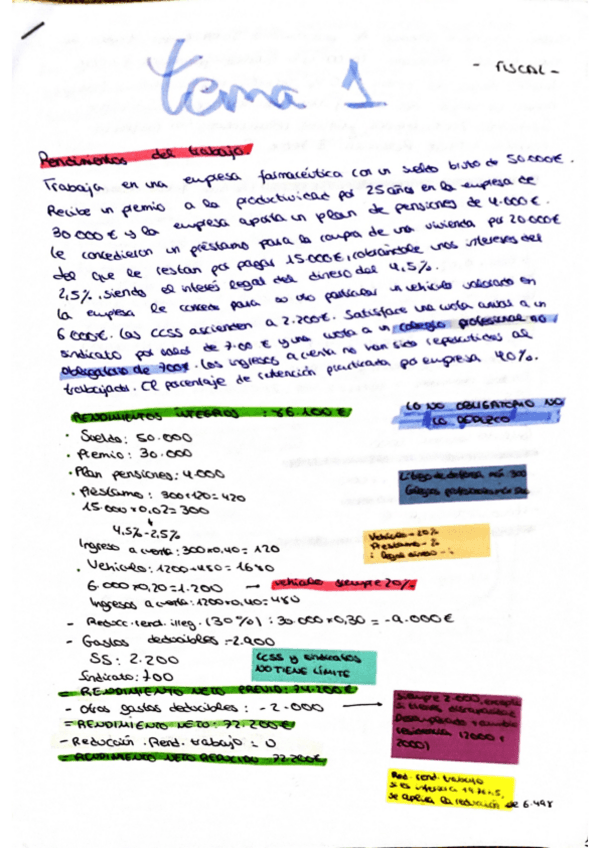 - FISCAL -
Tema 1
Rendimientos del trabajo
Trabaja en una empresa farmacéutica con un sueldo bruto de 50.000€.
Recibe un premio a la productividad por 25 años en la empresa de
30.000€ y la empresa aporta un plan de pensiones de 4.000€.
Le concedieron un préstamo para la compra de una vivienda por 20.000€
del que le restan por pagar 15.000€, cobrándole unos intereses del
2,5%, siendo el interés legal del dinero del 4,5%.
La empresa le concede para su uso particular un vehículo valorado en
6.000€. Las CCSS ascienden a 2.200€. Satisface una cuota anual a un
sindicato por valor de 700€ y una cuota a un colegio profesional no
obligatorio de 700€. Los ingresos a cuenta no han sido repercutidos al
trabajador. El porcentaje de retención practicada por empresa 40%.
RENDIMIENTOS ÍNTEGROS : 86.100€
LO NO OBLIGATORIO NO
LO DEDUZCO
· Sueldo: 50.000
· Premio: 30.000
· Plan pensiones: 4.000
· Préstamo: 300+120=420
15.000×0,02=300
4,5%-2,5%
Ingreso a cuenta: 300×0,40=120
Litigio de defensa máx 300
Colegios profesionales máx 500
Vehículo - 20%
Préstamo - %
. Vehículo: 1200+480=1680
6.000×0,20=1.200 → vehículo siempre 20%
Ingresos a cuenta: 1200×0,40=480
- Reducc. rend. irreg. (30%) : 30.000×0,30 = -9.000€
- Gastos deducibles -2.900
SS: 2.200
Sindicato: 700
CCSS y sindicatos
NO TIENE LÍMITE
= RENDIMIENTO NETO PREVIO: 74.200€
- Otros gastos deducibles: -2.000 →
= RENDIMIENTO NETO: 72.200€
- Reducción. Rend. trabajo = 0
= RENDIMIENTO NETO REDUCIDO 72.200€
Siempre 2.000, excepto
si tienes discapacidad
Desempleado + cambio
residencia (2000 +
2000)
Red. rend. trabajo
se aplica la reducción de 6.498